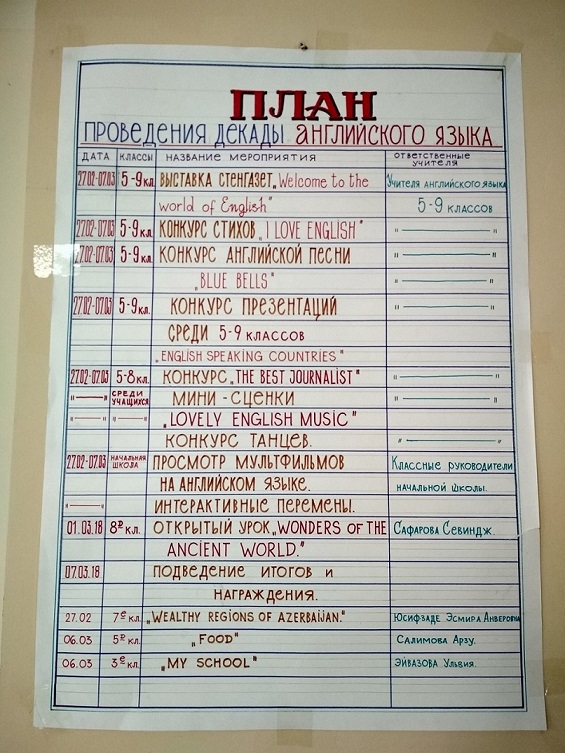 ПЛАН
ПРОВЕДЕНИЯ ДЕКАДЫ АНГЛИЙСКОГО ЯЗЫКА
ДАТА КЛАССЫ НАЗВАНИЕ МЕРОПРИЯТИЯ ОТВЕТСТВЕННЫЕ УЧИТЕЛЯ
27.02-07.03 5-9 КЛ. ВЫСТАВКА СТЕНГАЗЕТ „Welcome to the Учителя английского языка
world of English" 5-9 КЛАССОВ
27.02-07.03 5-9 КЛ. КОНКУРС СТИХОВ „I LOVE ENGLISH" " — "
27.02-07.03 5-9 КЛ. КОНКУРС АНГЛИЙСКОЙ ПЕСНИ " — "
„BLUE BELLS" " — "
27.02-07.03 5-9 КЛ. КОНКУРС ПРЕЗЕНТАЦИЙ " — "
СРЕДИ 5-9 КЛАССОВ
„ENGLISH SPEAKING COUNTRIES"
27.02-07.03 5-8 КЛ. КОНКУРС „THE BEST JOURNALIST" " — "
" — " СРЕДИ УЧАЩИХСЯ МИНИ - СЦЕНКИ " — "
" — " " — " „LOVELY ENGLISH MUSIC"
КОНКУРС ТАНЦЕВ. " — "
27.02-07.03 НАЧАЛЬНАЯ ШКОЛА ПРОСМОТР МУЛЬТФИЛЬМОВ Классные руководители
НА АНГЛИЙСКОМ ЯЗЫКЕ. НАЧАЛЬНОЙ ШКОЛЫ.
" — " ИНТЕРАКТИВНЫЕ ПЕРЕМЕНЫ.
01.03.18 8D КЛ. ОТКРЫТЫЙ УРОК „WONDERS OF THE САФАРОВА СЕВИНДЖ.
ANCIENT WORLD."
07.03.18 ПОДВЕДЕНИЕ ИТОГОВ И
НАГРАЖДЕНИЯ.
27.02 7e КЛ. „WEALTHY REGIONS OF AZERBAIJAN." ЮСИФЗАДЕ ЭСМИРА АНВЕРОВНА
06.03 5D КЛ. „FOOD" САЛИМОВА АРЗУ.
06.03 3e КЛ. „MY SCHOOL" ЭЙВАЗОВА УЛЬВИЯ.